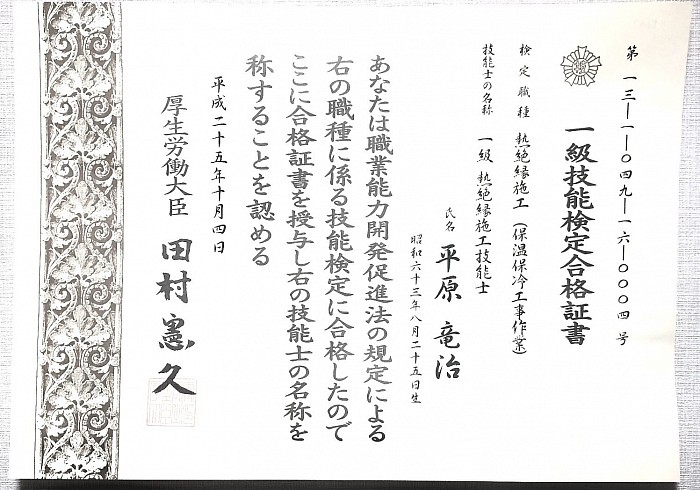 第一三—一—〇四九—一六—〇〇〇四号
一級技能検定合格証書
検定職種 熱絶縁施工（保温保冷工事作業）
技能士の名称 一級 熱絶縁施工技能士
氏名 平原 竜治
昭和六十三年八月二十五日生
あなたは職業能力開発促進法の規定による
右の職種に係る技能検定に合格したので
ここに合格証書を授与し右の技能士の名称を
称することを認める
平成二十五年十月四日
厚生労働大臣 田村憲久